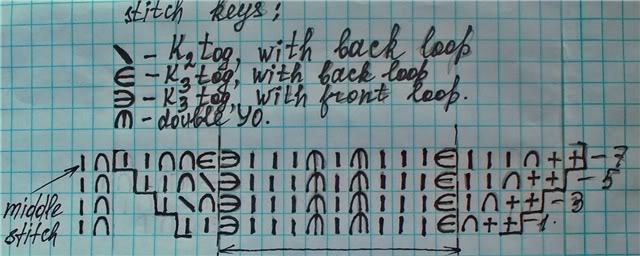 stitch keys:
\ - K2tog, with back loop
∈ - K3 tog, with back loop
∋ - K3 tog, with front loop.
- double YO.
-7
-5
-3
-1.
middle
stitch